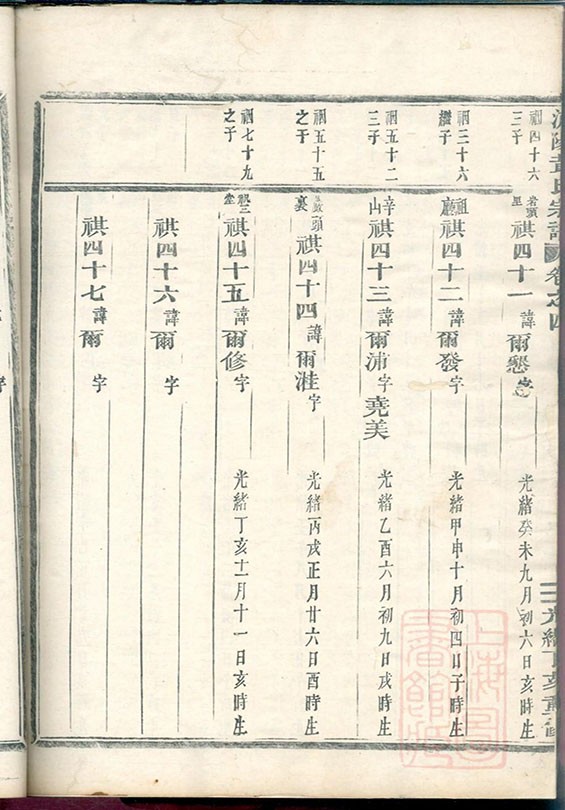 黃氏宗譜 卷之四 光緒丁亥重修
祠四十六
三子
岩頭
里
祺四十一 諱爾懇 字 光緒癸未九月初六日亥時生
祠三十六
繼子
祖
廳
祺四十二 諱爾發 字 光緒甲申十月初四日子時生
祠五十二
三子
辛
山
祺四十三 諱爾浦 字堯美 光緒乙酉六月初九日戌時生
祠五十五
之子
頭
裏
祺四十四 諱爾溎 字 光緒丙戌正月廿六日酉時生
祠七十九
之子
祺四十五 諱爾修 字 光緒丁亥十二月十一日亥時生
祺四十六 諱爾 字
祺四十七 諱爾 字
上海圖書館藏